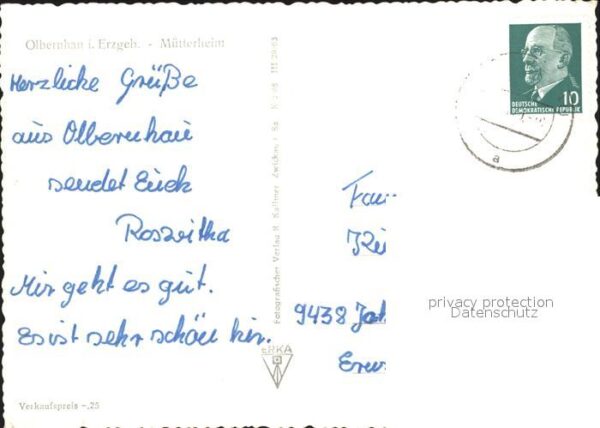 Olbernhau i. Erzgeb. - Mütterheim
Herzlicke Grüße
aus Olbernhau
sendet Euch
Roszwitha
Mir geht es gut.
Es ist sehr schön hir.
Fotografischer Verlag R. Kallmer Zwickau i. Sa
III 29/63
ERKA
Verkaufspreis -.25
DEUTSCHE
DEMOKRATISCHE REPUBLIK
10
a
Fam
9438
privacy protection
Datenschutz